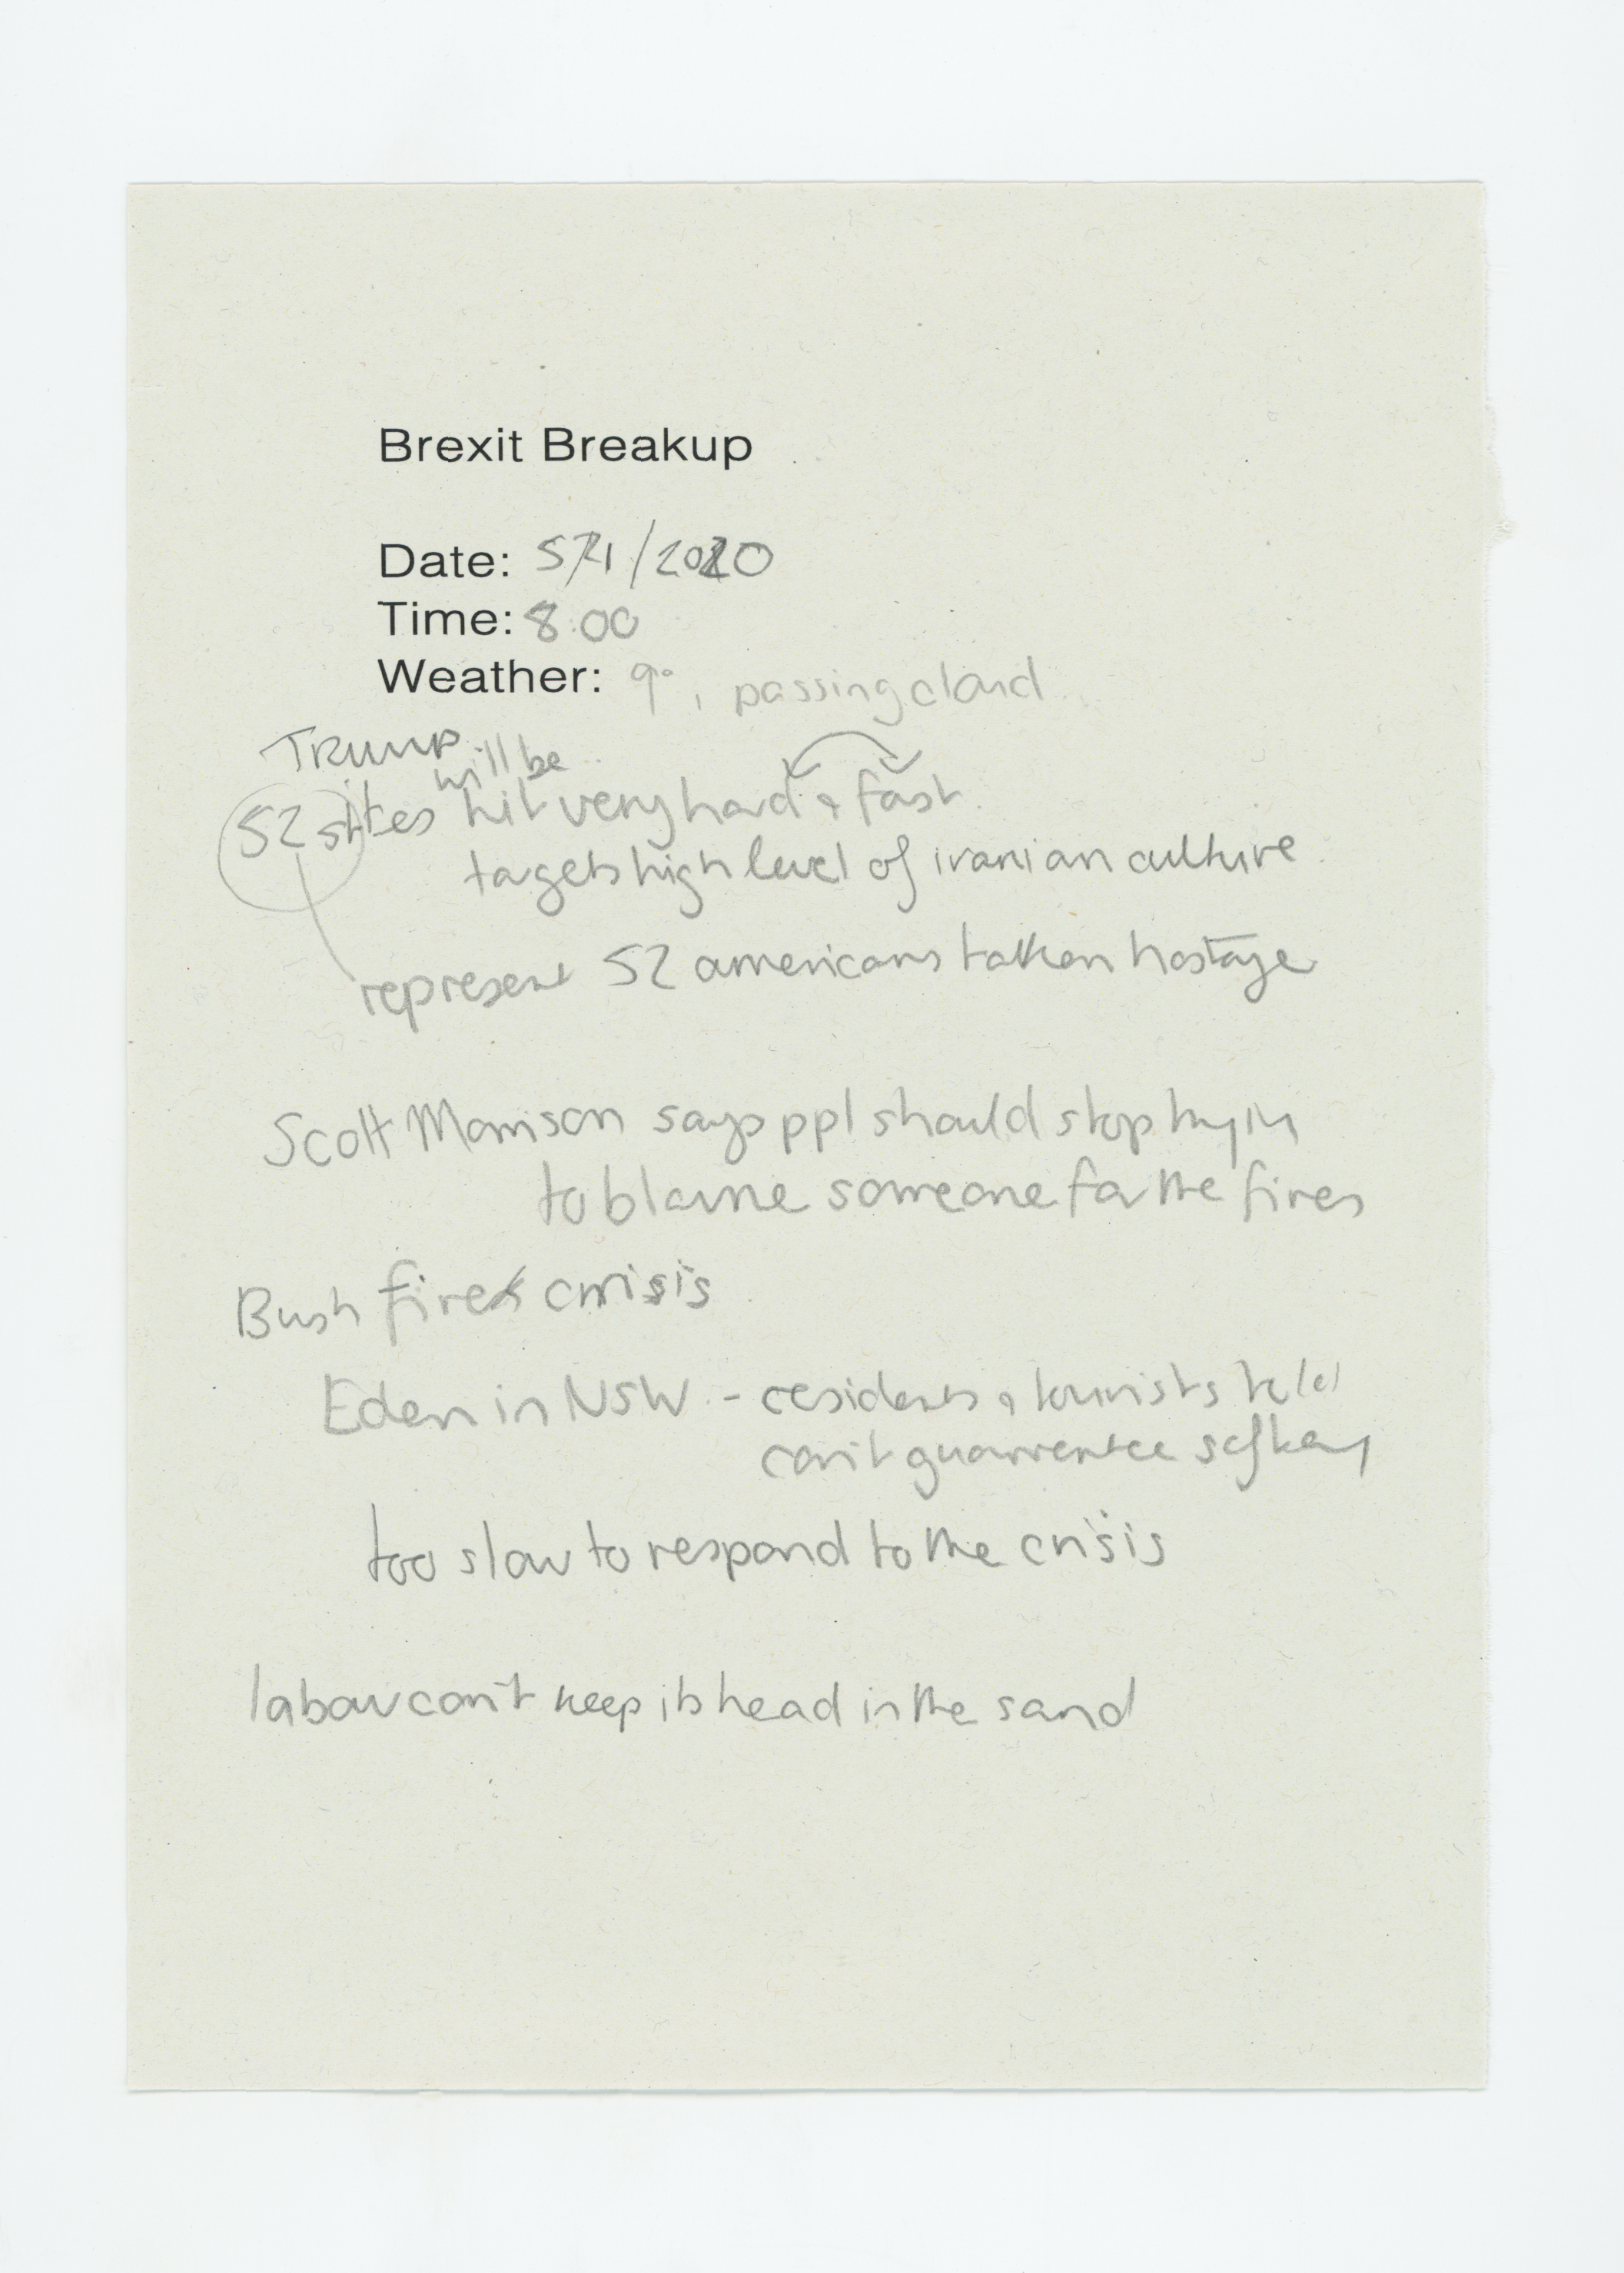 Brexit Breakup
Date: 5/1/2020
Time: 8.00
Weather: 9°, passing cloud
Trump
will be
52 sites hit very hard & fast
targets high level of iranian culture
represent 52 americans taken hostage
Scott Morrison says ppl should stop tryin
to blame someone for the fires
Bush fire crisis
Eden in NSW - residents & tourists told
can't guarrentee saftey
too slow to respond to the crisis
labour can't keep its head in the sand